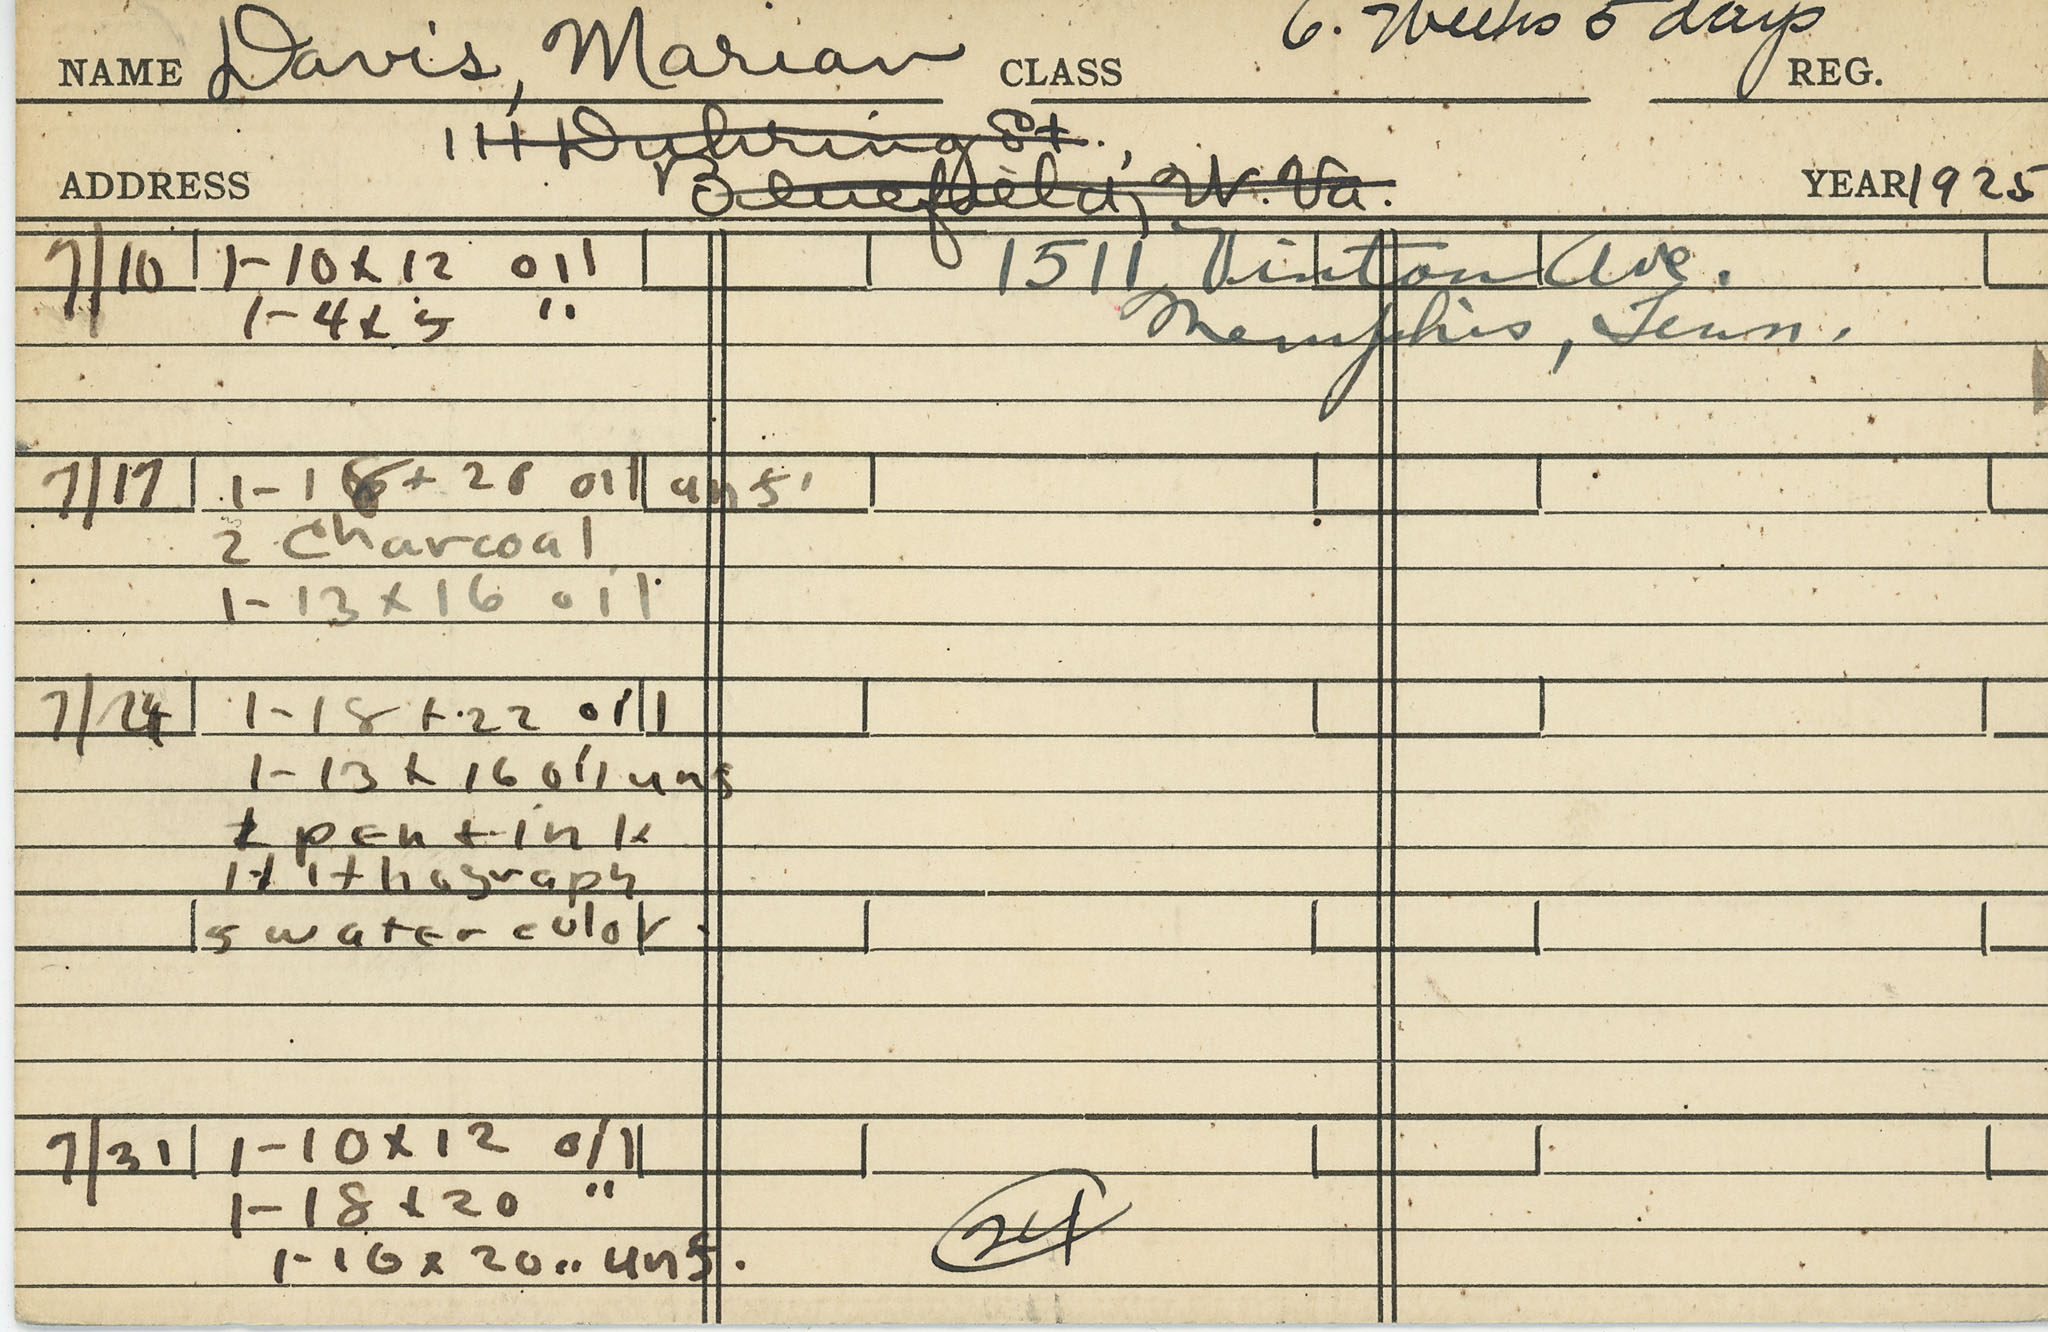 6. Weeks 5 days
NAME Davis, Marian CLASS REG.
Duhring St.,
ADDRESS Bluefield, W. Va. YEAR 1925
7/10 1-10x12 oil 1511 Vinton Ave.
1-4x5 " Memphis, Tenn.
7/17 1-18x20 oil uns'
2 charcoal
1-13x16 oil
7/24 1-18x22 oil
1-13x16 oil uns
pen + ink
lithograph
5 water color.
7/31 1-10x12 oil
1-18x20 "
1-16x20 " uns.
24